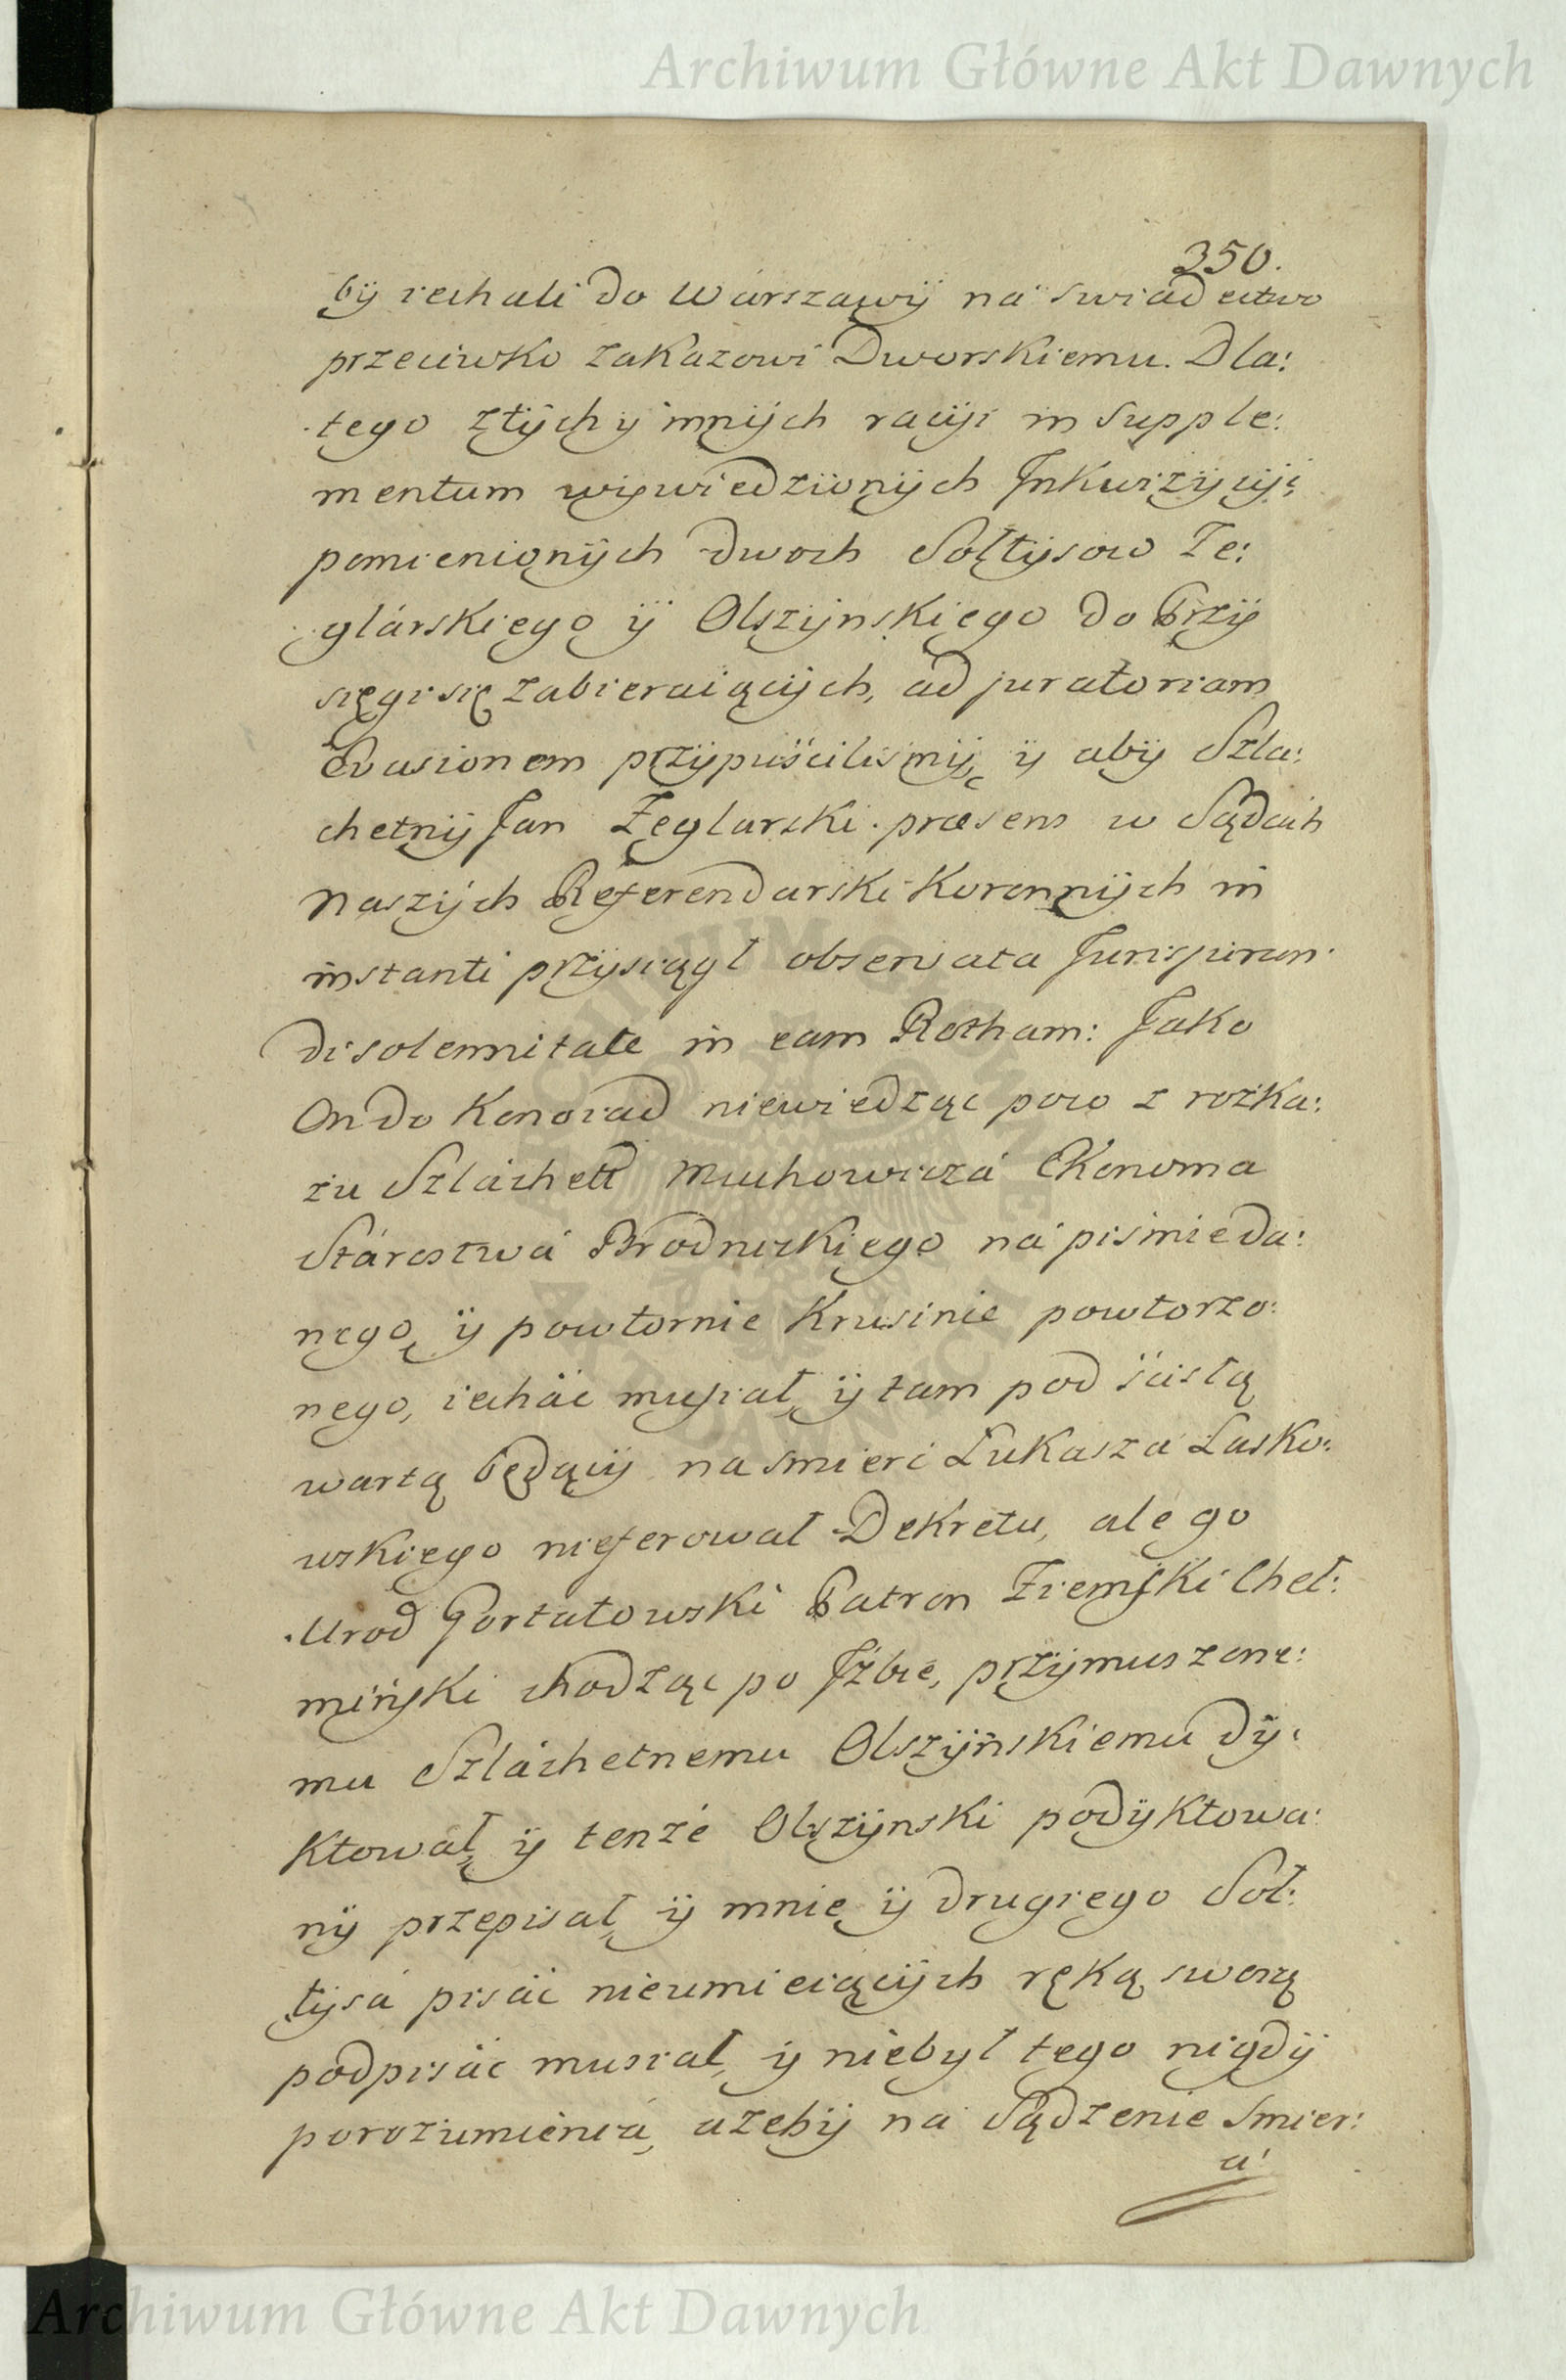 Archiwum Główne Akt Dawnych
350.
by iechali do Warszawÿ na swiadectwo
przeciwko zakazowi Dworskiemu. Dla:
tego z tÿch ÿ innÿch racÿi in Supple:
mentum wÿwiedzionÿch Inkwizÿcÿi,
pomienionÿch dwoch Sołtÿsow Ze:
glárskiego ÿ Olszÿnskiego do Przÿ
sięgi się zabieraiącÿch, ad juratoriam
Evasionem przÿpuścilismÿ, ÿ abÿ Szla:
chetnÿ Jan Zeglarski præsens w Sądach
Naszÿch Referendarski Koronnÿch in
instanti przÿsiągł observata Jurisjuran:
di solennitate in eam Rotham: Jako
On do Konoiad niewiedząc poco z rozka:
zu Szláchett Muchowicza Ekonoma
Stárostwá Brodnickiego ná piśmie da:
nego, ÿ powtornie Krusinie powtorzo:
nego, iecháć musiał, ÿ tam pod ścisłą
wartą będącÿ na smierć Łukasza Lasko:
wskiego nieferował Dekretu, ale go
Urod Gortatowski Patron Ziemski Cheł:
miński chodząc po Jzbie, przÿmuszone:
mu Szláchetnemu Olszÿńskiemu dÿ:
ktował, ÿ tenże Olszÿnski podÿktowa:
nÿ przepisał, ÿ mnie ÿ drugiego Soł:
tÿsá pisáć nieumieiącÿch ręką swoią
podpisáć musiał, ÿ niebÿł tego nigdÿ
porozumienia, ażebÿ na Sądzenie Smier:
ci
ARCHIWUM GŁÓWNE AKT DAWNYCH
Archiwum Główne Akt Dawnych